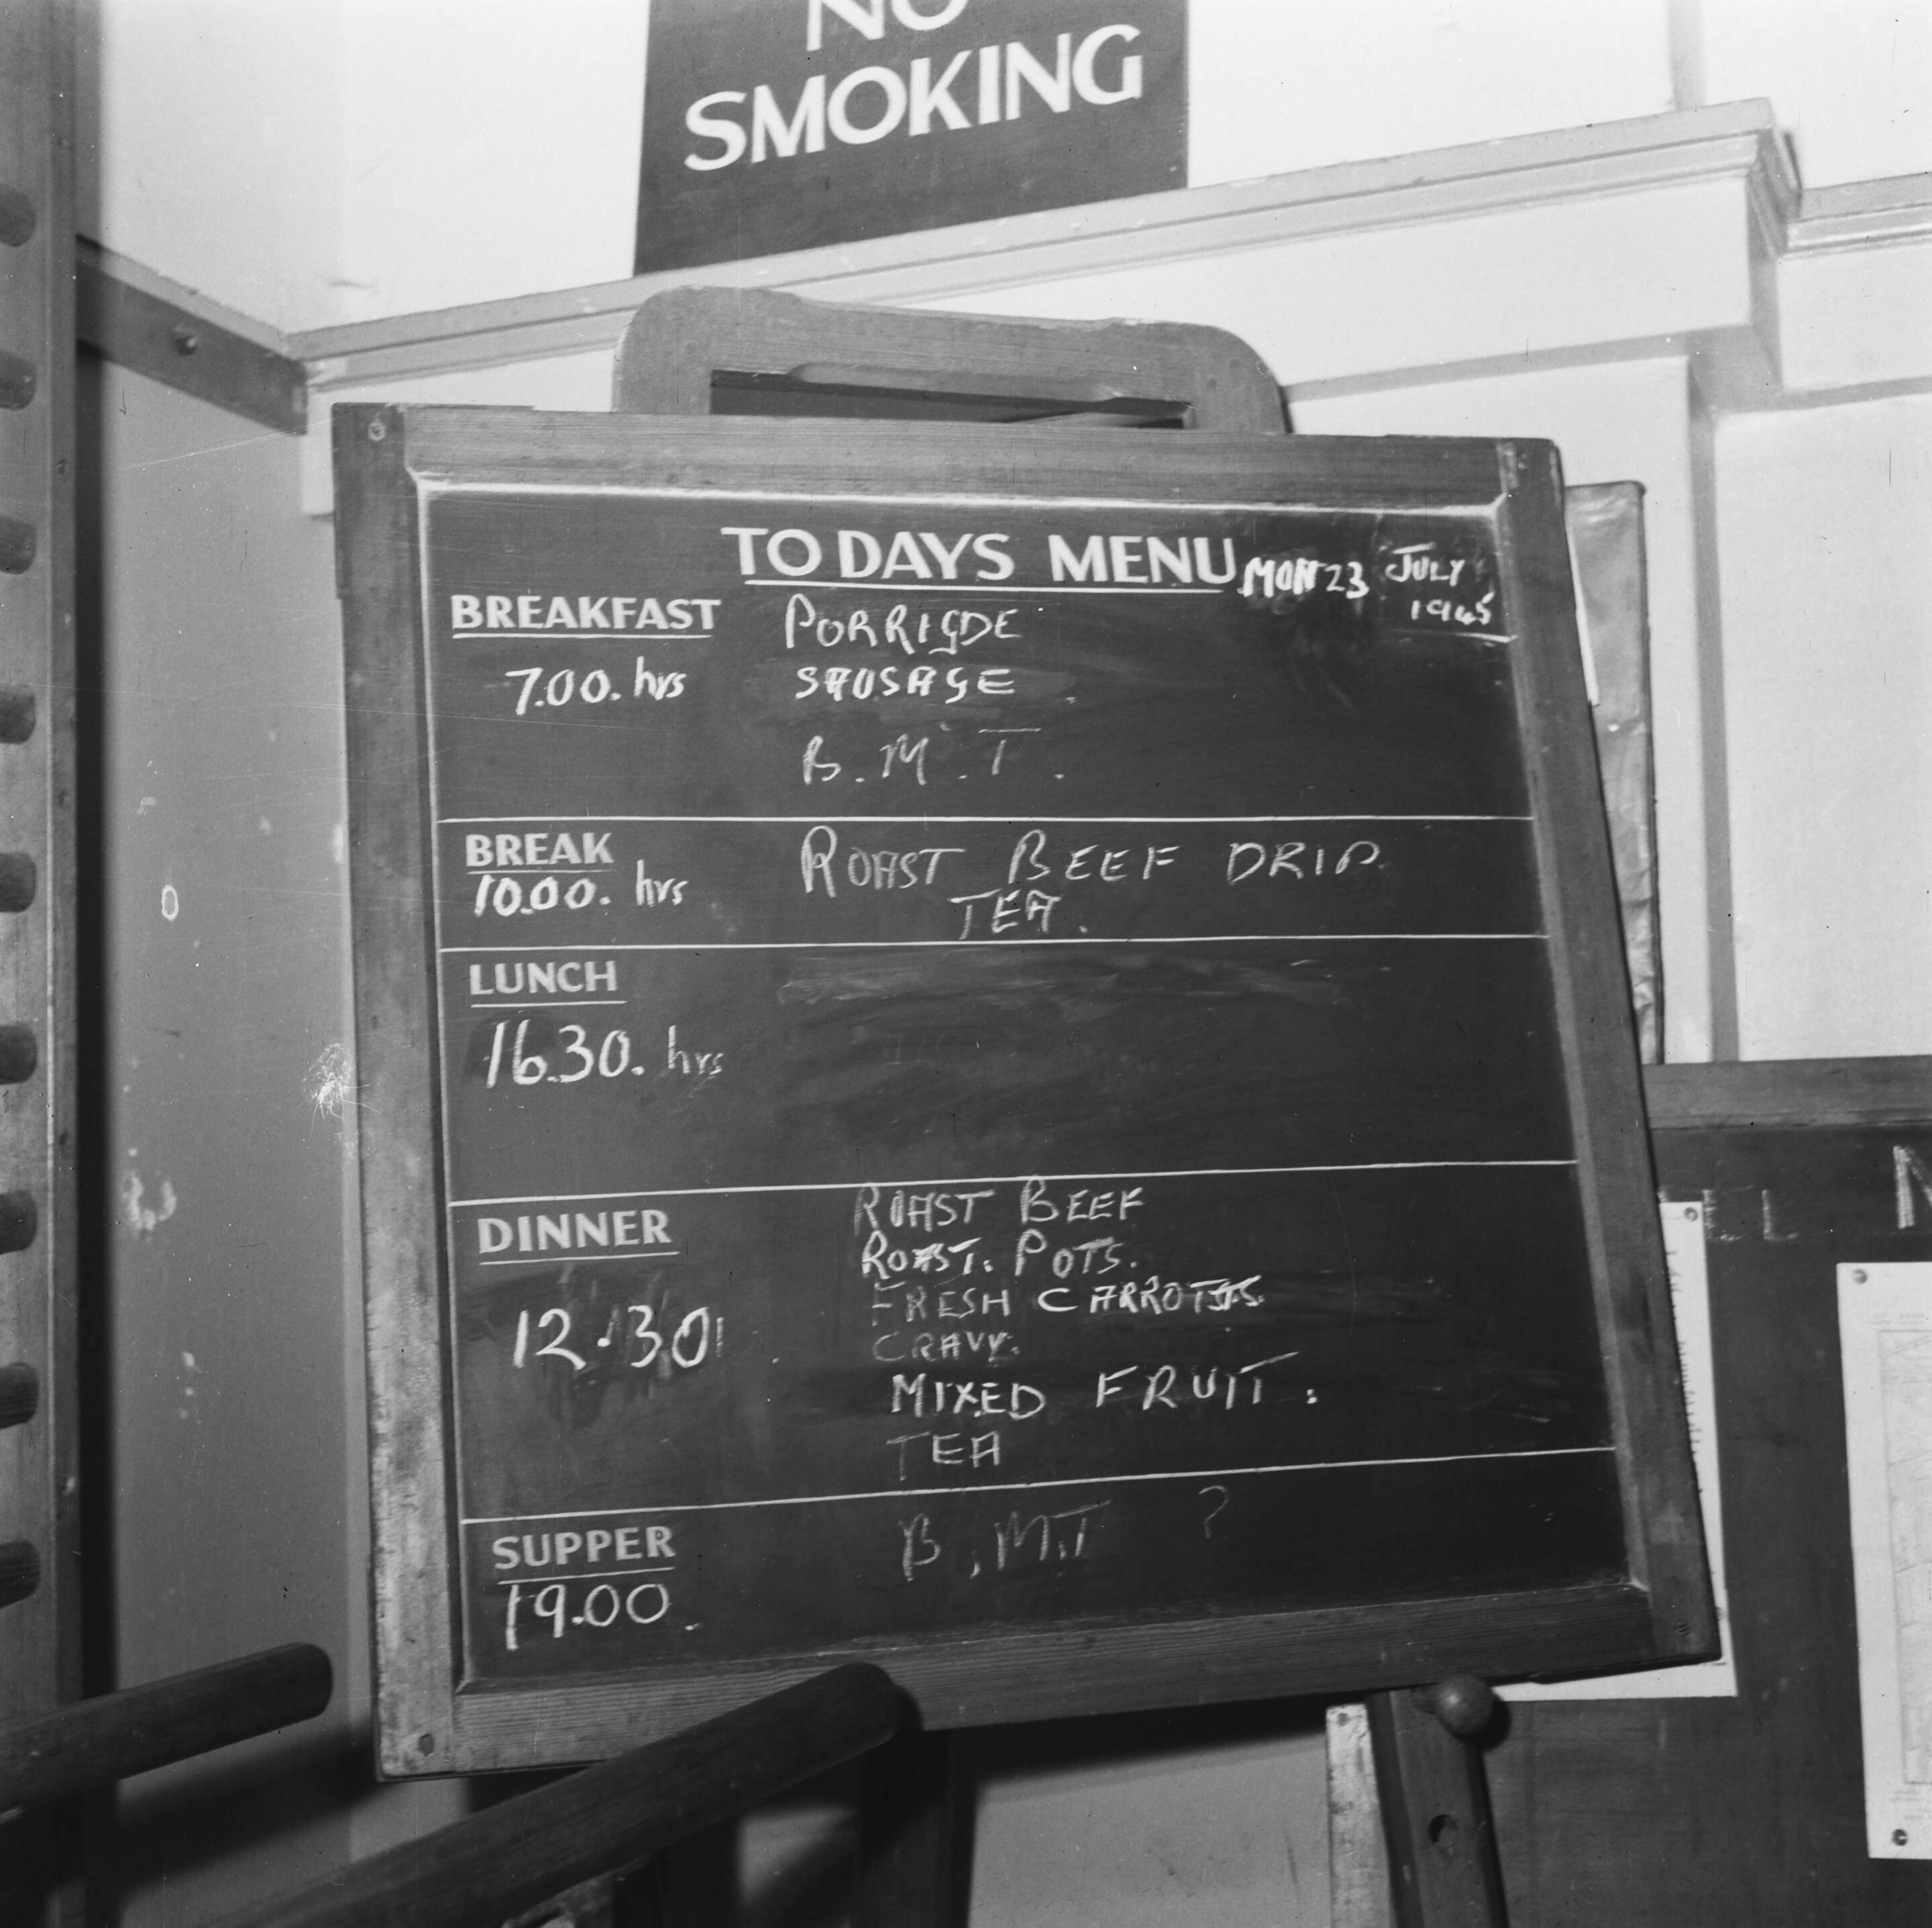 NO
SMOKING
TO DAYS MENU MON 23 JULY
1945
BREAKFAST PORRIGDE
7.00. hrs SAUSAGE
B.M.T.
BREAK ROAST BEEF DRIP.
10.00. hrs TEA.
LUNCH
16.30. hrs
DINNER ROAST BEEF
ROAST. POTS.
FRESH CARROTS.
12.30 GRAVY.
MIXED FRUIT.
TEA
SUPPER B.M.T ?
19.00.